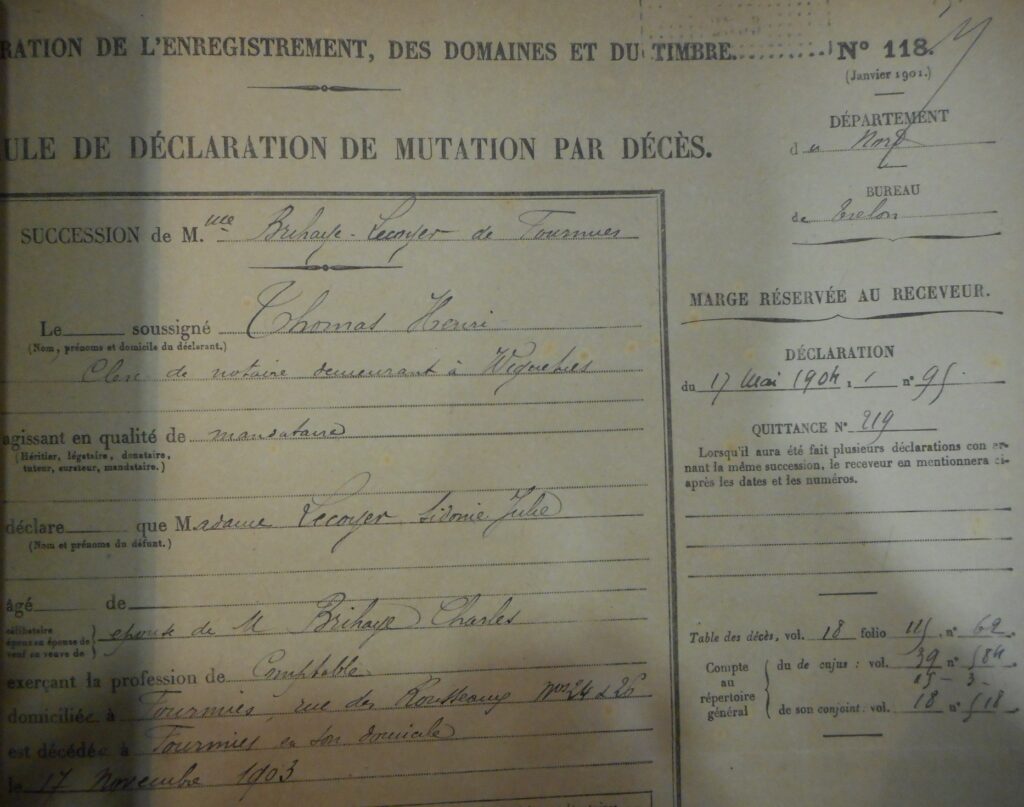 RATION DE L'ENREGISTREMENT, DES DOMAINES ET DU TIMBRE.
N° 118.
(Janvier 1901.)
ULE DE DÉCLARATION DE MUTATION PAR DÉCÈS.
DÉPARTEMENT
du Nord
BUREAU
de Trélon
SUCCESSION de M.me Brihaye-Lecoyer de Fourmies
Le soussigné Thomas Henri
(Nom, prénoms et domicile du déclarant.)
Clerc de notaire demeurant à Wignehies
agissant en qualité de mandataire
(Héritier, légataire, donataire,
tuteur, curateur, mandataire.)
déclare que Madame Lecoyer Sidonie Julie
(Nom et prénoms du défunt.)
âgé de
célibataire
époux ou épouse de
veuf ou veuve de
épouse de M Brihaye Charles
exerçant la profession de Comptable
domiciliée à Fourmies, rue des Rousseaux nos 24 & 26
est décédée à Fourmies en son domicile
le 17 Novembre 1903
MARGE RÉSERVÉE AU RECEVEUR.
DÉCLARATION
du 17 Mai 1904, n° 95
QUITTANCE N° 219
Lorsqu'il aura été fait plusieurs déclarations concernant la même succession, le receveur en mentionnera ci-
après les dates et les numéros.
Table des décès, vol. 18 folio 115, n° 62
Compte
au
répertoire
général
du de cujus : vol. 39 n° 584
15 - 3
de son conjoint : vol. 18 n° 518